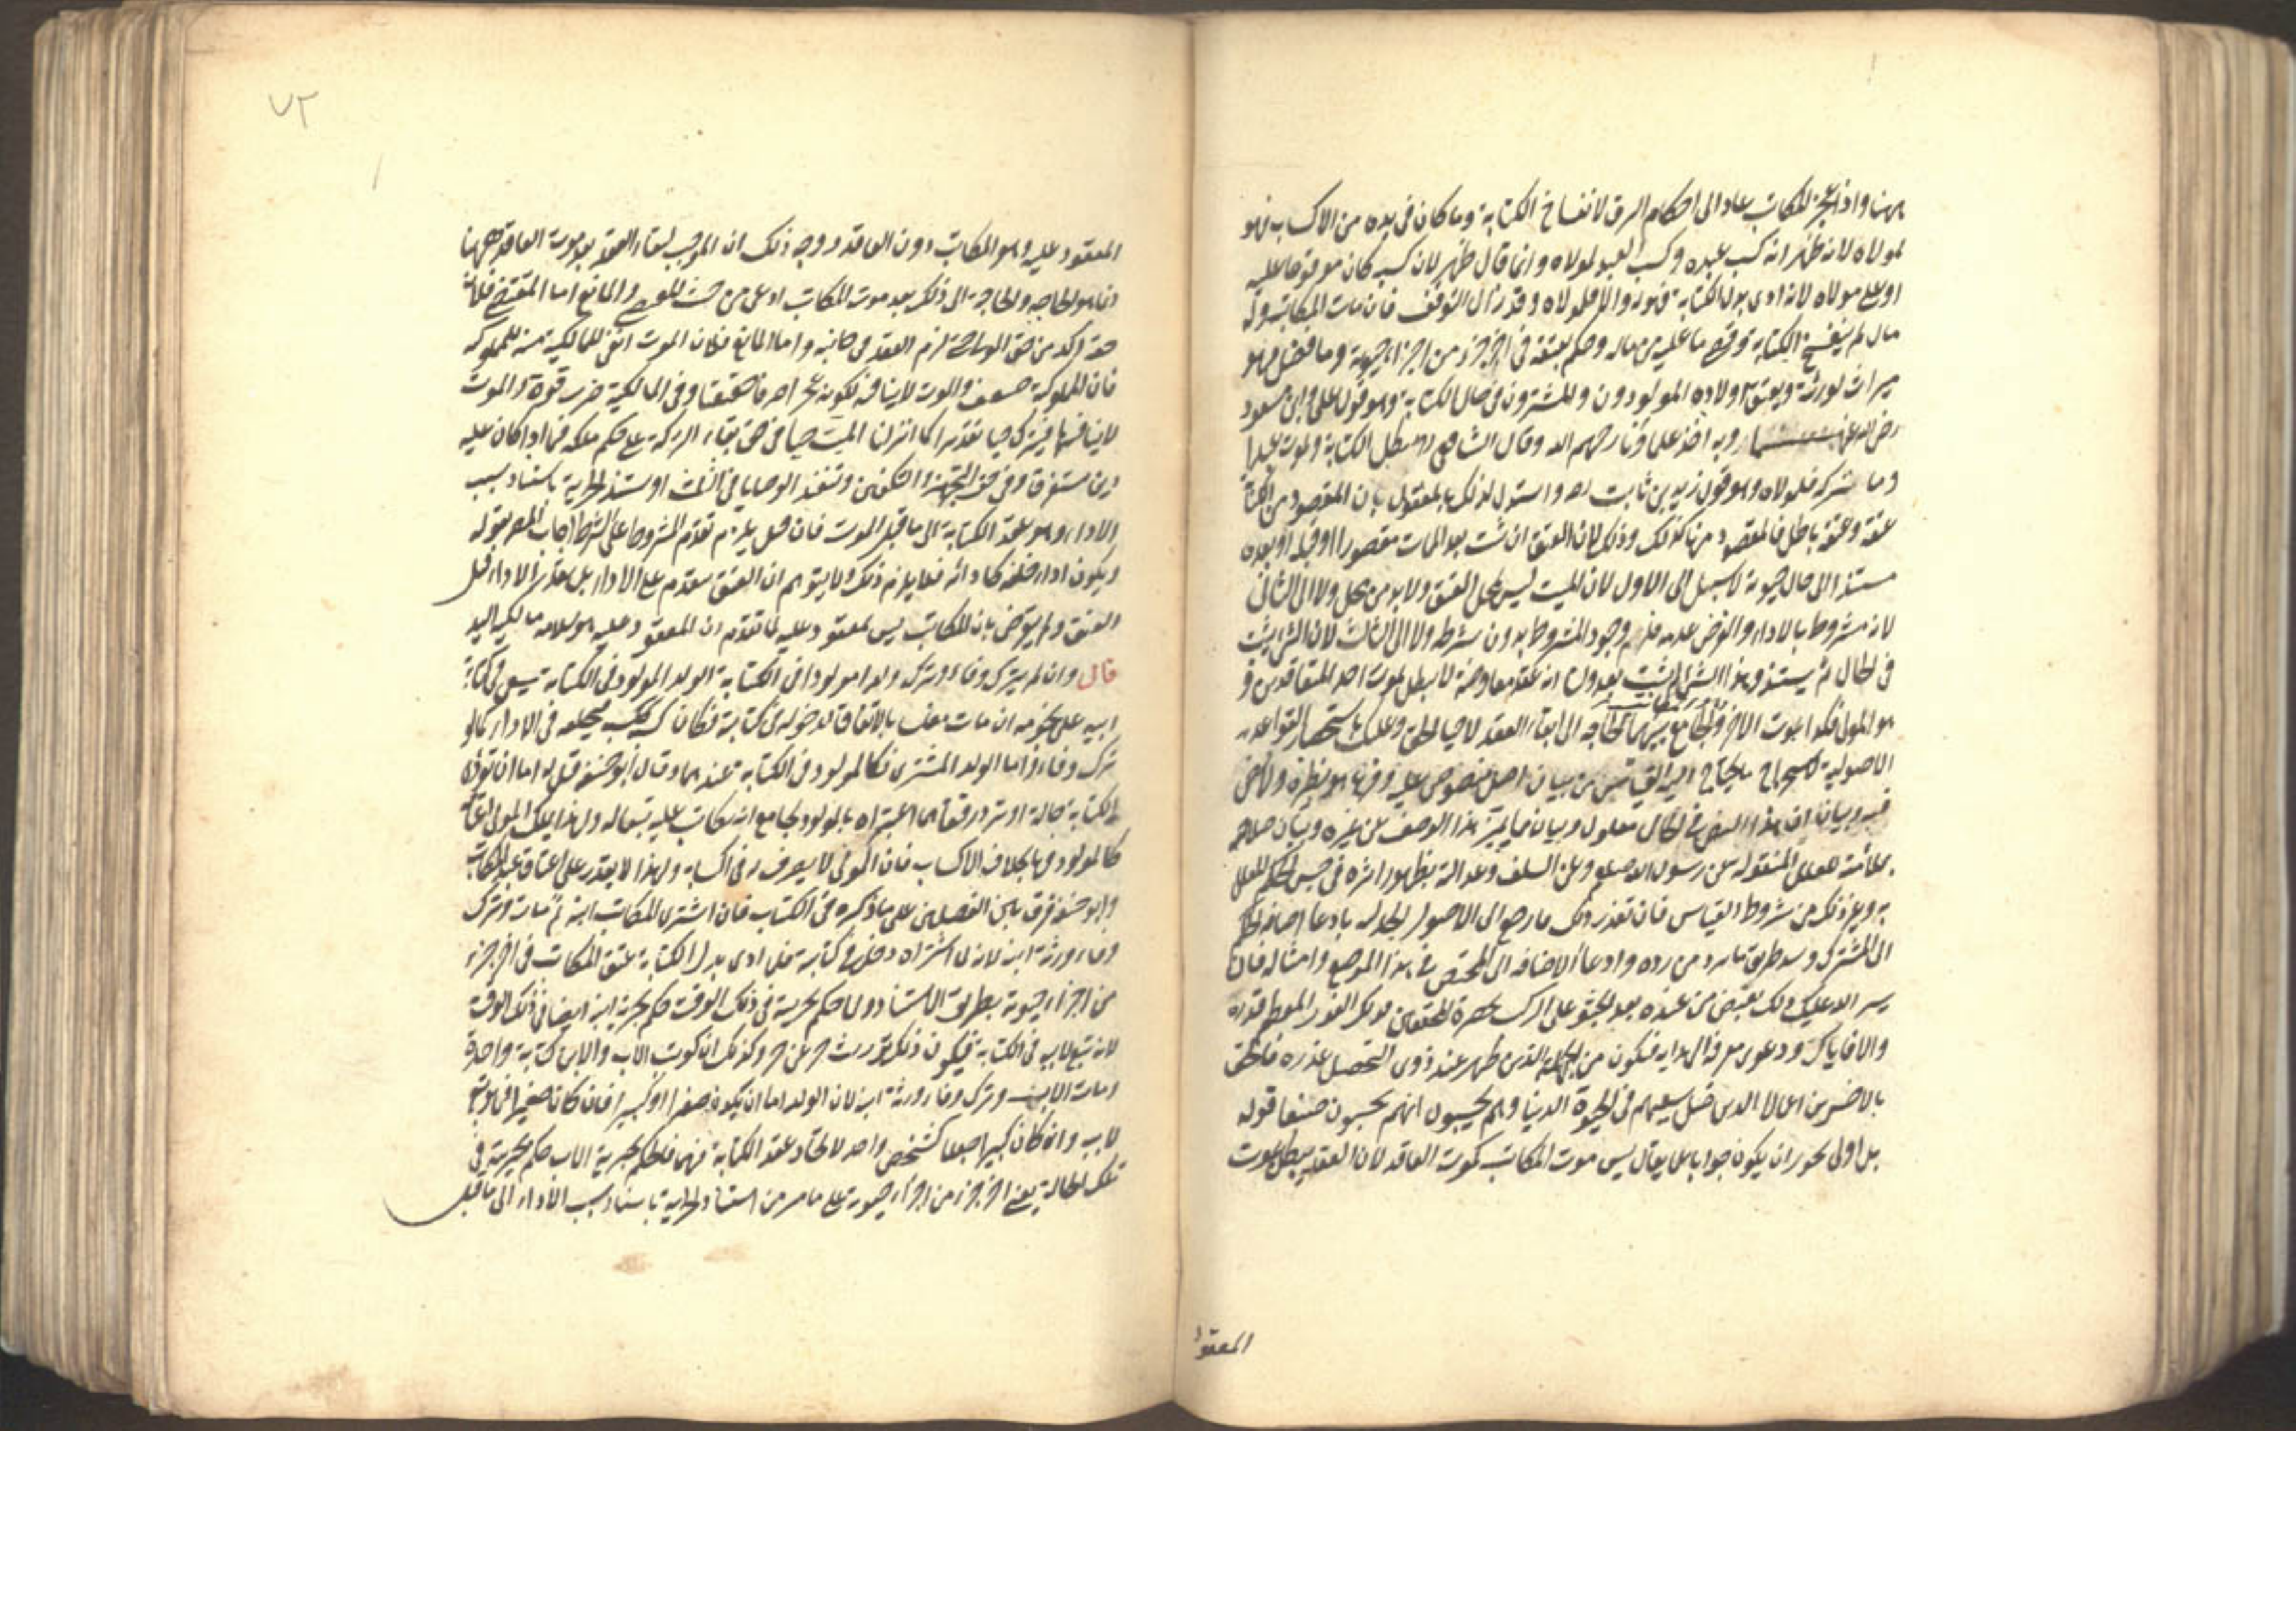 ههنا واذا عجز المكاتب عاد الى احكام الرق لانفساخ الكتابة وما كان فى يده من الاكساب فهو
لمولاه لانه ظهر انه كسب عبده وكسب العبد لمولاه وانما قال ظهر لان كسبه كان موقوفا عليه
او على مولاه لانه ادى بدل الكتابة فهو له والا فلمولاه وقد زال التوقف فان مات المكاتب وله
مال لم ينفسخ الكتابة وقضى ما عليه من ماله وحكم بعتقه فى آخر جزء من اجزاء حيوته وما فضل فهو
ميراث لورثته ويعتق اولاده المولودون والمشترون فى حال الكتابة وهو قول على وابن مسعود
رضى الله عنهما وبه اخذ علماؤنا رحمهم الله وقال الشافعى رح تبطل الكتابة ويموت عبدا
وما تركه فلمولاه وهو قول زيد بن ثابت رضه واستدل لذلك بالمعقول بان المقصود من الكتابة
عتقه وعتقه باطل فالمقصود منها كذلك وذلك لان العتق ان ثبت بعد الممات مقصورا او قبله او بعده
مستندا الى حال حيوته لا سبيل الى الاول لان الميت ليس بمحل العتق ولا بد من محل ولا الى الثانى
لانه مشروط بالاداء والفرض عدمه فلزم وجود المشروط بدون شرطه ولا الى الثالث لان الشئ يثبت
فى الحال ثم يستند وهذا الشئ لم يثبت بعد ولنا انه عقد معاوضة لا يبطل بموت احد المتعاقدين و
هو المولى فكذا بموت الآخر والجامع بينهما الحاجة الى ابقاء العقد لاحياء الحق وعليك باستحضار القواعد
الاصولية لاستخراج ما يحتاج اليه القياس من بيان اصل منصوص عليه وفرع هو نظيره ولا نص
فيه وبيان ان هذا النص فى الحال معلول وبيان ما يميز هذا الوصف عن غيره وبيان صلاحه
بملائمة العلل المنقولة عن رسول الله صلعم وعن السلف وعدالته بظهور اثره فى جنس الحكم المعلل
به وغير ذلك من شروط القياس فان تعذر ذلك فارجع الى الاصول بادعاء اضافة الحكم
الى المشترك وسد طريق ما يرد من رده وادعاء الاضافة الى المختص فى هذا الموضع وامثاله فان
يسر الله عليك ذلك بعد الجثو على الركب بحضرة المحققين
والا فاياك ودعوى معرفة الهداية فتكون من
بالاخسرين اعمالا الذين ضل سعيهم فى الحيوة الدنيا وهم يحسبون انهم يحسنون صنعا قوله
بل اولى يجوز ان يكون جوابا عما يقال ليس موت المكاتب كموت العاقد لان العقد يبطل بموت
المعقود
٧٢
المعقود عليه وهو المكاتب دون العاقد ووجه ذلك ان الموجب لبقاء العقد بعد موت العاقد ههنا
انما هو الحاجة والحاجة الى ذلك بعد موت المكاتب ادعى من حيث المقتضى والمانع اما المقتضى فلان
حقه آكد من حق المولى حتى لزم العقد فى جانبه واما المانع فلان الموت انفى للمالكية منه للمملوكية
فان المملوكية ضعف والموت لا ينافيه لكونه عجزا صرفا حقيقا وفى المالكية ضرب قوة والموت
لا ينافيها فينزل حيا تقديرا كما انزل الميت حيا فى حق بقاء التركة على حكم ملكه فيما اذا كان عليه
دين مستغرق وفى حق التجهيز والتكفين وتنفيذ الوصايا فى الثلث او تستند الحرية باستناد سبب
الاداء وهو عقد الكتابة الى ما قبل الموت فان قيل يلزم تقدم المشروط على الشرط اجاب المصر بقوله
ويكون اداء خلفه كادائه فلا يلزم ذلك ولا يتوهم ان العتق متقدم على الاداء بل يقدر الاداء قبل
العتق ولا يعترض بان المكاتب ليس بمعقود عليه لما تقدم ان المعقود عليه هو سلامة مالكية اليد
قال وان لم يترك وفاء وترك ولدا مولودا فى الكتابة الولد المولود فى الكتابة يسعى فى كتابة
ابيه على نجومه ان مات مفلسا بالاتفاق لدخوله فى كتابته فكان كسبه ككسبه فيخلفه فى الاداء كما لو
ترك وفاء واما الولد المشترى فكالمولود فى الكتابة عندهما وقال ابو حنيفة قيل له اما ان تؤدى
الكتابة حالة او ترد رقيقا هما اعتبراه بالمولود بجامع انه مكاتب عليه تبعا له ولهذا يملك المولى اعتاقه
كالمولود فيها بخلاف الاكساب فان المولى لا يتصرف فى اكسابه ولهذا لا يقدر على اعتاق عبد المكاتب
وابو حنيفة فرق بين الفصلين على ما ذكره فى الكتاب فان اشترى المكاتب ابنه ثم مات وترك
وفاء ورثه ابنه لانه لما اشتراه دخل فى كتابته فلما ادى بدل الكتابة عتق المكاتب فى آخر جزء
من اجزاء حيوته بطريق الاستناد ولما حكم بحريته فى ذلك الوقت حكم بحرية ابنه ايضا فى ذلك الوقت
لانه تبع لابيه فى الكتابة فيكون ذلك توريث حر عن حر وكذلك ان كوتب الاب والابن كتابة واحدة
ومات الاب وترك وفاء ورثه ابنه لان الولد اما ان يكون صغيرا او كبيرا فان كان صغيرا فهو تبع
لابيه وان كان كبيرا جعلا كشخص واحد لاتحاد عقد الكتابة فيهما فالحكم بحرية الاب حكم بحريته فى
تلك الحالة يعنى آخر جزء من اجزاء حيوته على ما مر من استناد الحرية باستناد سبب الاداء الى ما قبل